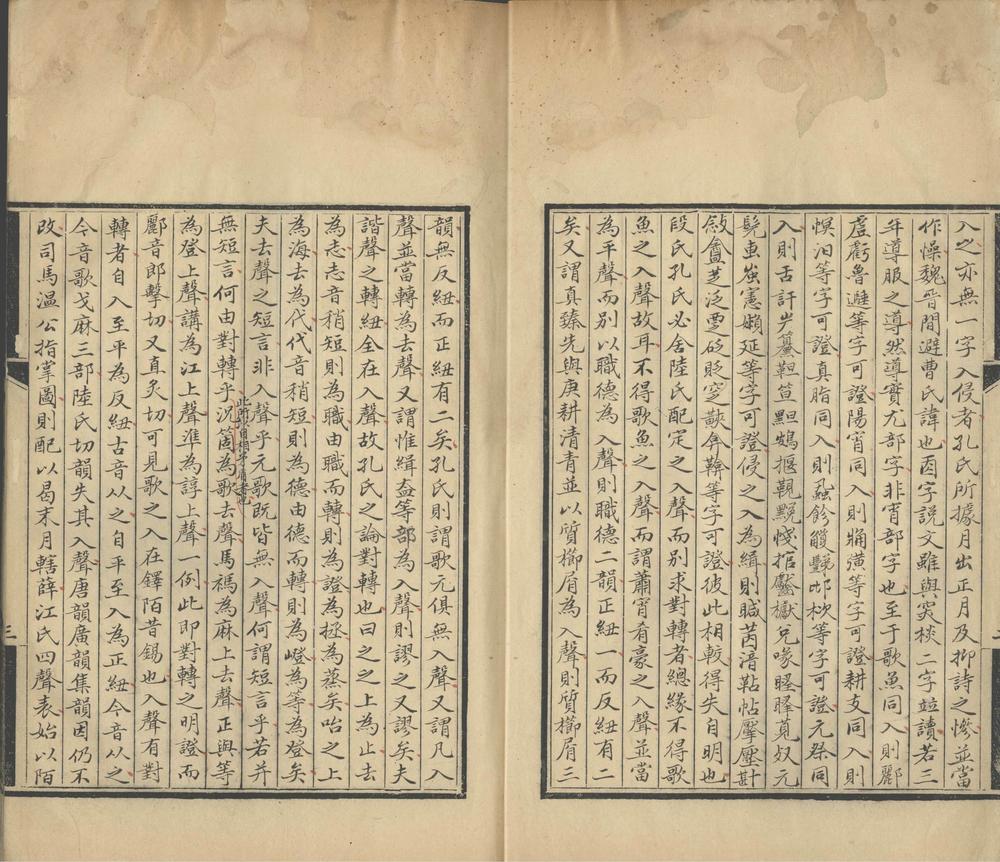 入之亦無一字入侵者孔氏所據月出正月及抑詩之慘並當
作懆魏晉間避曹氏諱也㐁字説文雖與突棪二字竝讀若三
年導服之導然導實尤部字非宵部字也至于歌魚同入則酈
虘虧魯避等字可證陽宵同入則㸢潢等字可證耕支同入則
愥汨等字可證真脂同入則
等字可證元祭同
入則舌訐屵
元
髡虫蚩憲嬾延等字可證侵之入為緝則㺂芮湆䩞帖擪壓斟
㪉盦芝泛覂砭貶窆鞅弇鞥等字可證彼此相較得失自明也
段氏孔氏必舍陸氏配定之入聲而別求對轉者總緣不得歌
魚之入聲故耳不得歌魚之入聲而謂蕭宵肴豪之入聲並當
為平聲而别以職德為入聲則職德二韻正紐一而反紐有二
矣又謂真臻先與庚耕清青並以質櫛屑為入聲則質櫛屑三
韻無反紐而正紐有二矣孔氏則謂歌元俱無入聲又謂凡入
聲並當轉為去聲又謂惟緝盍等部為入聲則謬之又謬矣夫
諧聲之轉紐全在入聲故孔氏之論對轉也曰之之上為止去
為志志音稍短則為職由職而轉則為證為拯為蒸矣咍之上
為海去為代代音稍短則為德由德而轉則為嶝為等為登矣
夫去聲之短言非入聲乎元歌既皆無入聲何謂短言乎若并
無短言何由對轉乎況箇為歌去聲馬禡為麻上去聲正與等
此所
為登上聲講為江上聲準為諄上聲一例此即對轉之明證而
酈音郎擊切又直炙切可見歌之入在鐸陌昔錫也入聲有對
轉者自入至平為反紐古音以之自平至入為正紐今音以之
今音歌戈麻三部陸氏切韻失其入聲唐韻廣韻集韻因仍不
改司馬溫公指掌圖則配以曷末月轄薛江氏四聲表始以陌
三